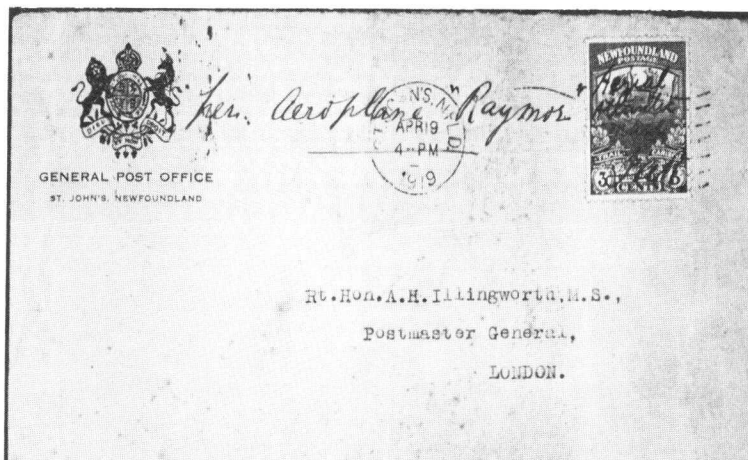 per. Aeroplane "Raymor"
GENERAL POST OFFICE
ST. JOHN'S, NEWFOUNDLAND
N'S, NFLD.
APR 19
4-PM
1919
NEWFOUNDLAND
POSTAGE
Aerial
3 CENTS 3
Rt.Hon.A.H.Illingworth,M.S.,
Postmaster General,
LONDON.